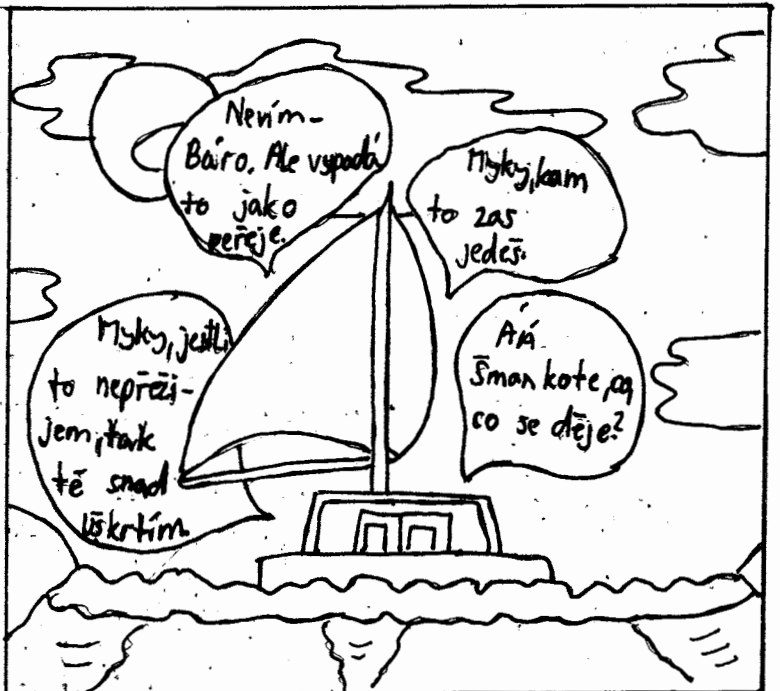 Nevím-
Báro. Ale vypadá
to jako
peřeje.
Myky, kam
to zas
jedeš.
Myky, jestli
to nepřeži-
jem, tak
tě snad
uškrtím.
ÁÁ
šman kote, co
co se děje?